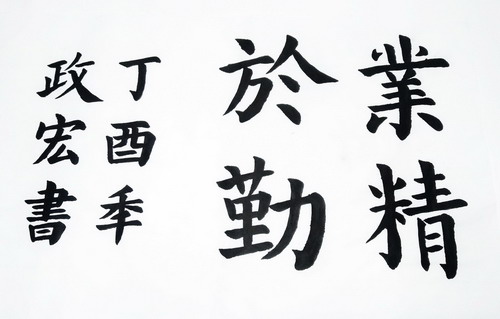 業精
於勤
丁酉年
政宏書